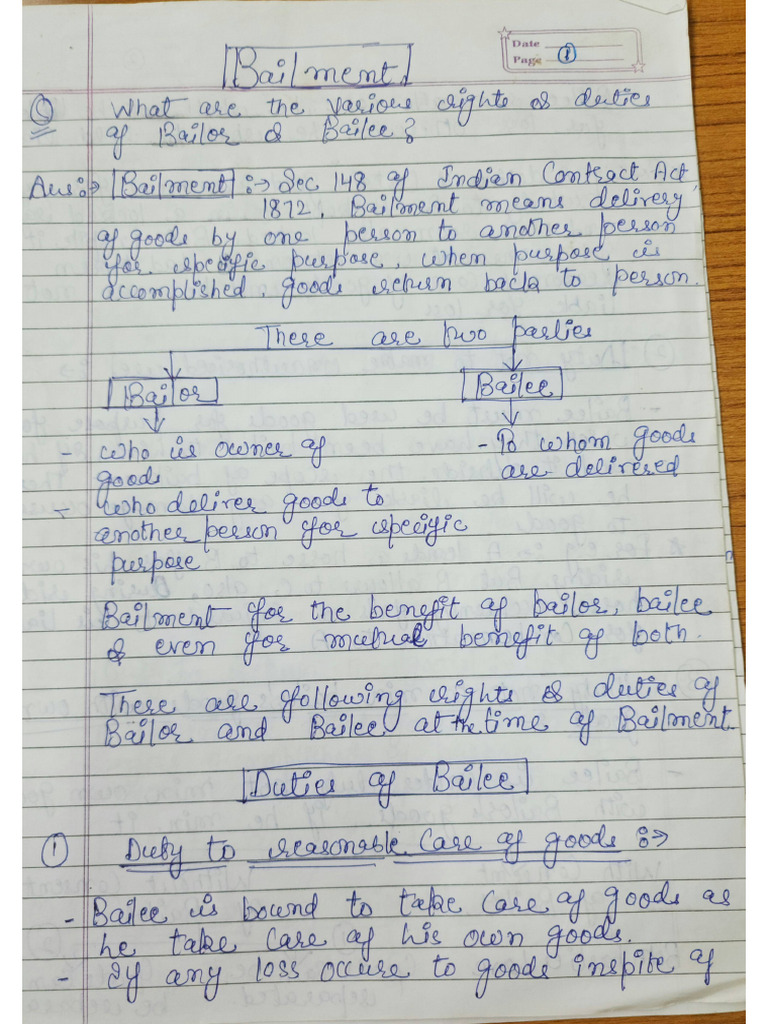 Date
Page 1
Bailment
Q What are the various rights & duties
of Bailor & Bailee?
Ans:→ Bailment :→ Sec 148 of Indian Contract Act
1872, Bailment means delivery
of goods by one person to another person
for specific purpose, when purpose is
accomplished, goods return back to person.
There are two parties
Bailor Bailee
- who is owner of
goods
- who deliver goods to
another person for specific
purpose
- To whom goods
are delivered
Bailment for the benefit of bailor, bailee
& even for mutual benefit of both.
There are following rights & duties of
Bailor and Bailee at the time of Bailment
Duties of Bailee
① Duty to reasonable Care of goods :→
- Bailee is bound to take Care of goods as
he take Care of his own goods.
- If any loss occure to goods inspite of